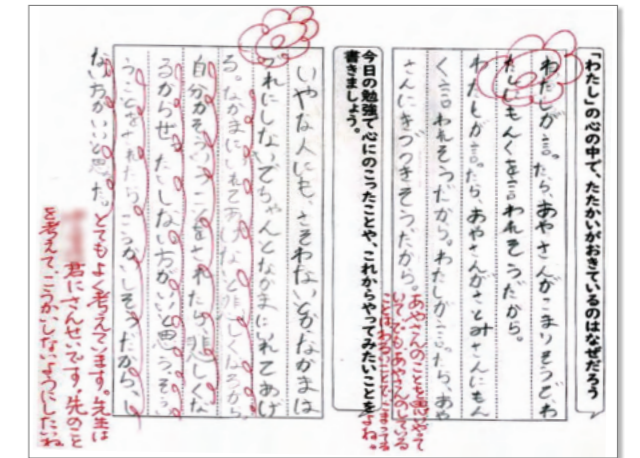 「わたし」の心の中で、たたかいがおきているのはなぜだろう
わたしが言ったら、あやさんがこまりそうだし、わ
たしももんくを言われそうだから。
わたしが言ったら、あやさんがさとみさんにもん
く言われそうだから。わたしが言ったら、あや
さんにきづつきそうだから。
あやさんのことを思いやって
いて、でもあやさんがしている
ことはわるいことでこまってる
よね。
今日の勉強で心にのこったことや、これからやってみたいことを
書きましょう。
いやな人にも、さそわないとかなかまは
ずれにしないでちゃんとなかまに入れてあげ
る。なかまにいれてあげないと悲しくなるから。
自分がそういうことをされたら、悲しくな
るからぜったいしない方がいいと思う。そう
うことをされたら、こうかいしそうだから、し
ない方がいいと思った。
とてもよく考えています。先生は
君にさんせいです。先のこと
を考えて、こうかいしないようにしたいね